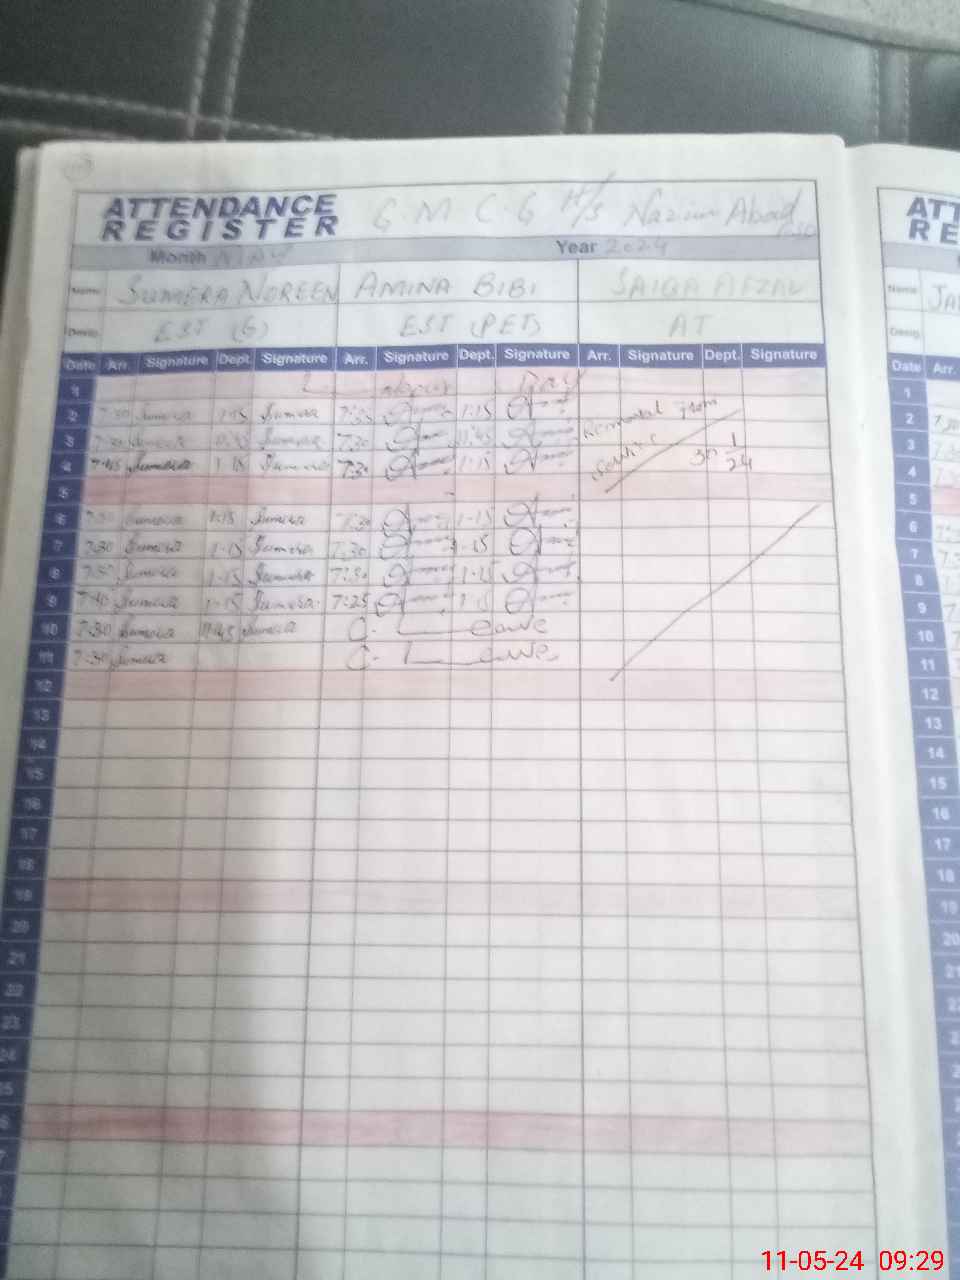 ATTENDANCE REGISTER G.M.C.G H/S Nazim Abad
Month MAY Year 2024
Name SUMERA NOREEN AMINA BIBI SAIQA AFZAL
Desig. EST (G) EST (PET) AT
Date Arr. Signature Dept. Signature Arr. Signature Dept. Signature Arr. Signature Dept. Signature
1 Labour Day
2 7:30 Sumera 1:15 Sumera 1:15 Removal from
3 Sumera 7:30 11:45
4 7:45 Sumera 1:15 Sumera 7:30 1:15
5
6 7:30 Sumera 1:15 Sumera 7:30 1:15
7 7:30 Sumera 1:15 Sumera 7:30 1:15
8 Sumera 1:15 Sumera 7:30 1:15
9 7:40 Sumera 1:15 Sumera 7:25 1:15
10 7:30 Sumera 11:45 Sumera C. Leave
11 7:30 Sumera C. Leave
12
13
14
15
16
17
18
19
20
21
22
23
24
ATT
RE
Name JA
Desig.
Date Arr.
1
2
3
4
5
6
7
8
9
10
11
12
13
14
15
16
17
18
19
20
21
22
11-05-24 09:29